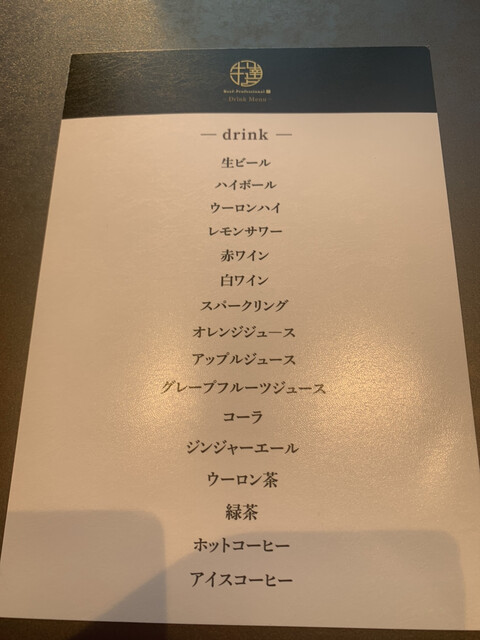 牛達
Beef Professional 極
- Drink Menu -
— drink —
生ビール
ハイボール
ウーロンハイ
レモンサワー
赤ワイン
白ワイン
スパークリング
オレンジジュース
アップルジュース
グレープフルーツジュース
コーラ
ジンジャーエール
ウーロン茶
緑茶
ホットコーヒー
アイスコーヒー